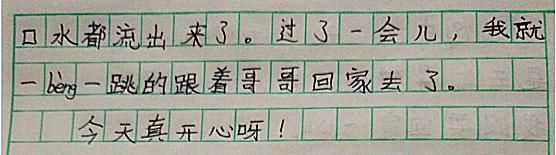 口水都流出来了。过了一会儿，我就
一bèng一跳的跟着哥哥回家去了。
今天真开心呀！